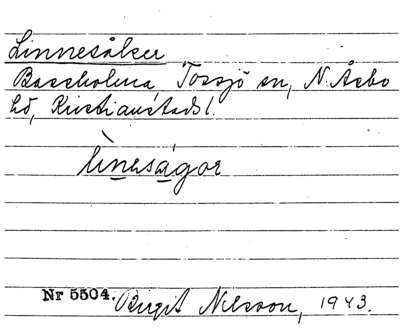 Linnesåker
Baseholma, Tossjö sn, N. Åsbo
hd, Kristianstads l.
lìnesågor
Nr 5504. Birgit Nilsson, 1943.